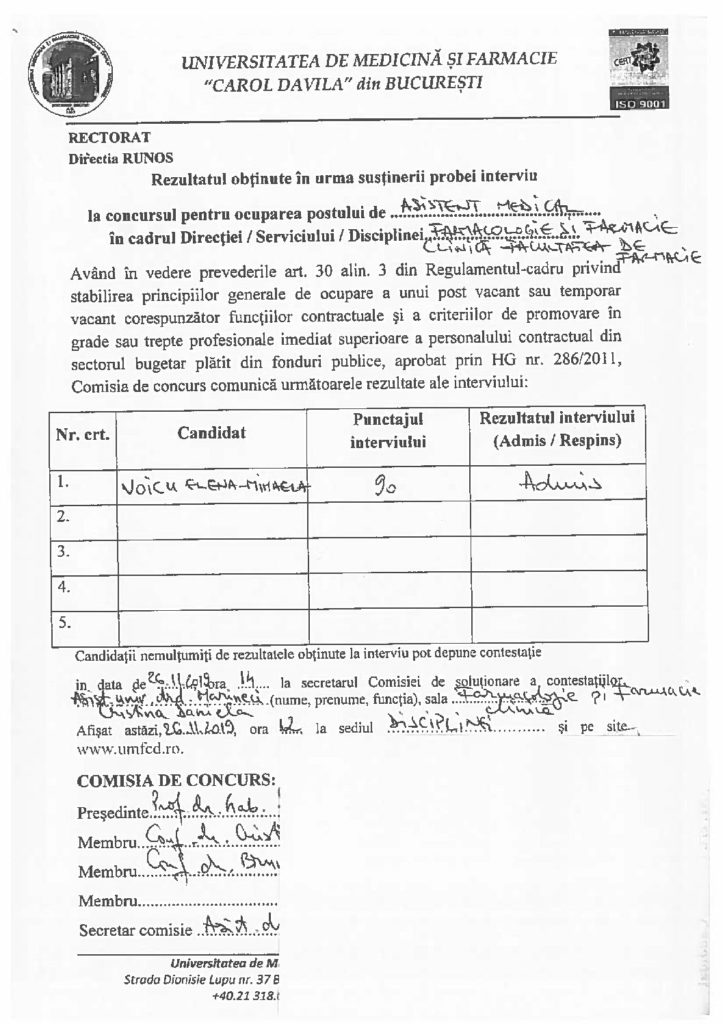 UNIVERSITATEA DE MEDICINĂ ȘI FARMACIE
"CAROL DAVILA" din BUCUREȘTI
CERT
ISO 9001
RECTORAT
Directia RUNOS
Rezultatul obținute în urma susținerii probei interviu
la concursul pentru ocuparea postului de ASISTENT MEDICAL
în cadrul Direcției / Serviciului / Disciplinei FARMACOLOGIE SI FARMACIE
CLINICĂ - FACULTATEA DE
FARMACIE
Având în vedere prevederile art. 30 alin. 3 din Regulamentul-cadru privind
stabilirea principiilor generale de ocupare a unui post vacant sau temporar
vacant corespunzător funcțiilor contractuale și a criteriilor de promovare în
grade sau trepte profesionale imediat superioare a personalului contractual din
sectorul bugetar plătit din fonduri publice, aprobat prin HG nr. 286/2011,
Comisia de concurs comunică următoarele rezultate ale interviului:
Nr. crt. Candidat Punctajul interviului Rezultatul interviului (Admis / Respins)
1. VOICU ELENA-MIHAELA 90 Admis
2.
3.
4.
5.
Candidații nemulțumiți de rezultatele obținute la interviu pot depune contestație
in data de 26.11.2019 ora 14 la secretarul Comisiei de soluționare a contestațiilor,
Asist. univ. drd. Marineci (nume, prenume, funcția), sala Farmacologie și Farmacie
Cristina Daniela clinică
Afișat astăzi, 26.11.2019, ora 12 la sediul DISCIPLINEI și pe site
www.umfcd.ro.
COMISIA DE CONCURS:
Președinte Prof. dr. hab.
Membru Conf. dr. Crist
Membru Conf. dr.
Membru
Secretar comisie Asist. d
Universitatea de M
Strada Dionisie Lupu nr. 37 B
+40.21 318.